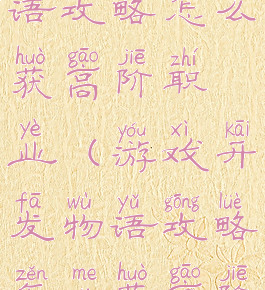 语攻略怎么
huò gāo jiē zhí
获高阶职
yè yóu xì kāi
业（游戏开
fā wù yǔ gōng lüè
发物语攻略
zěn me huò gāo jiē